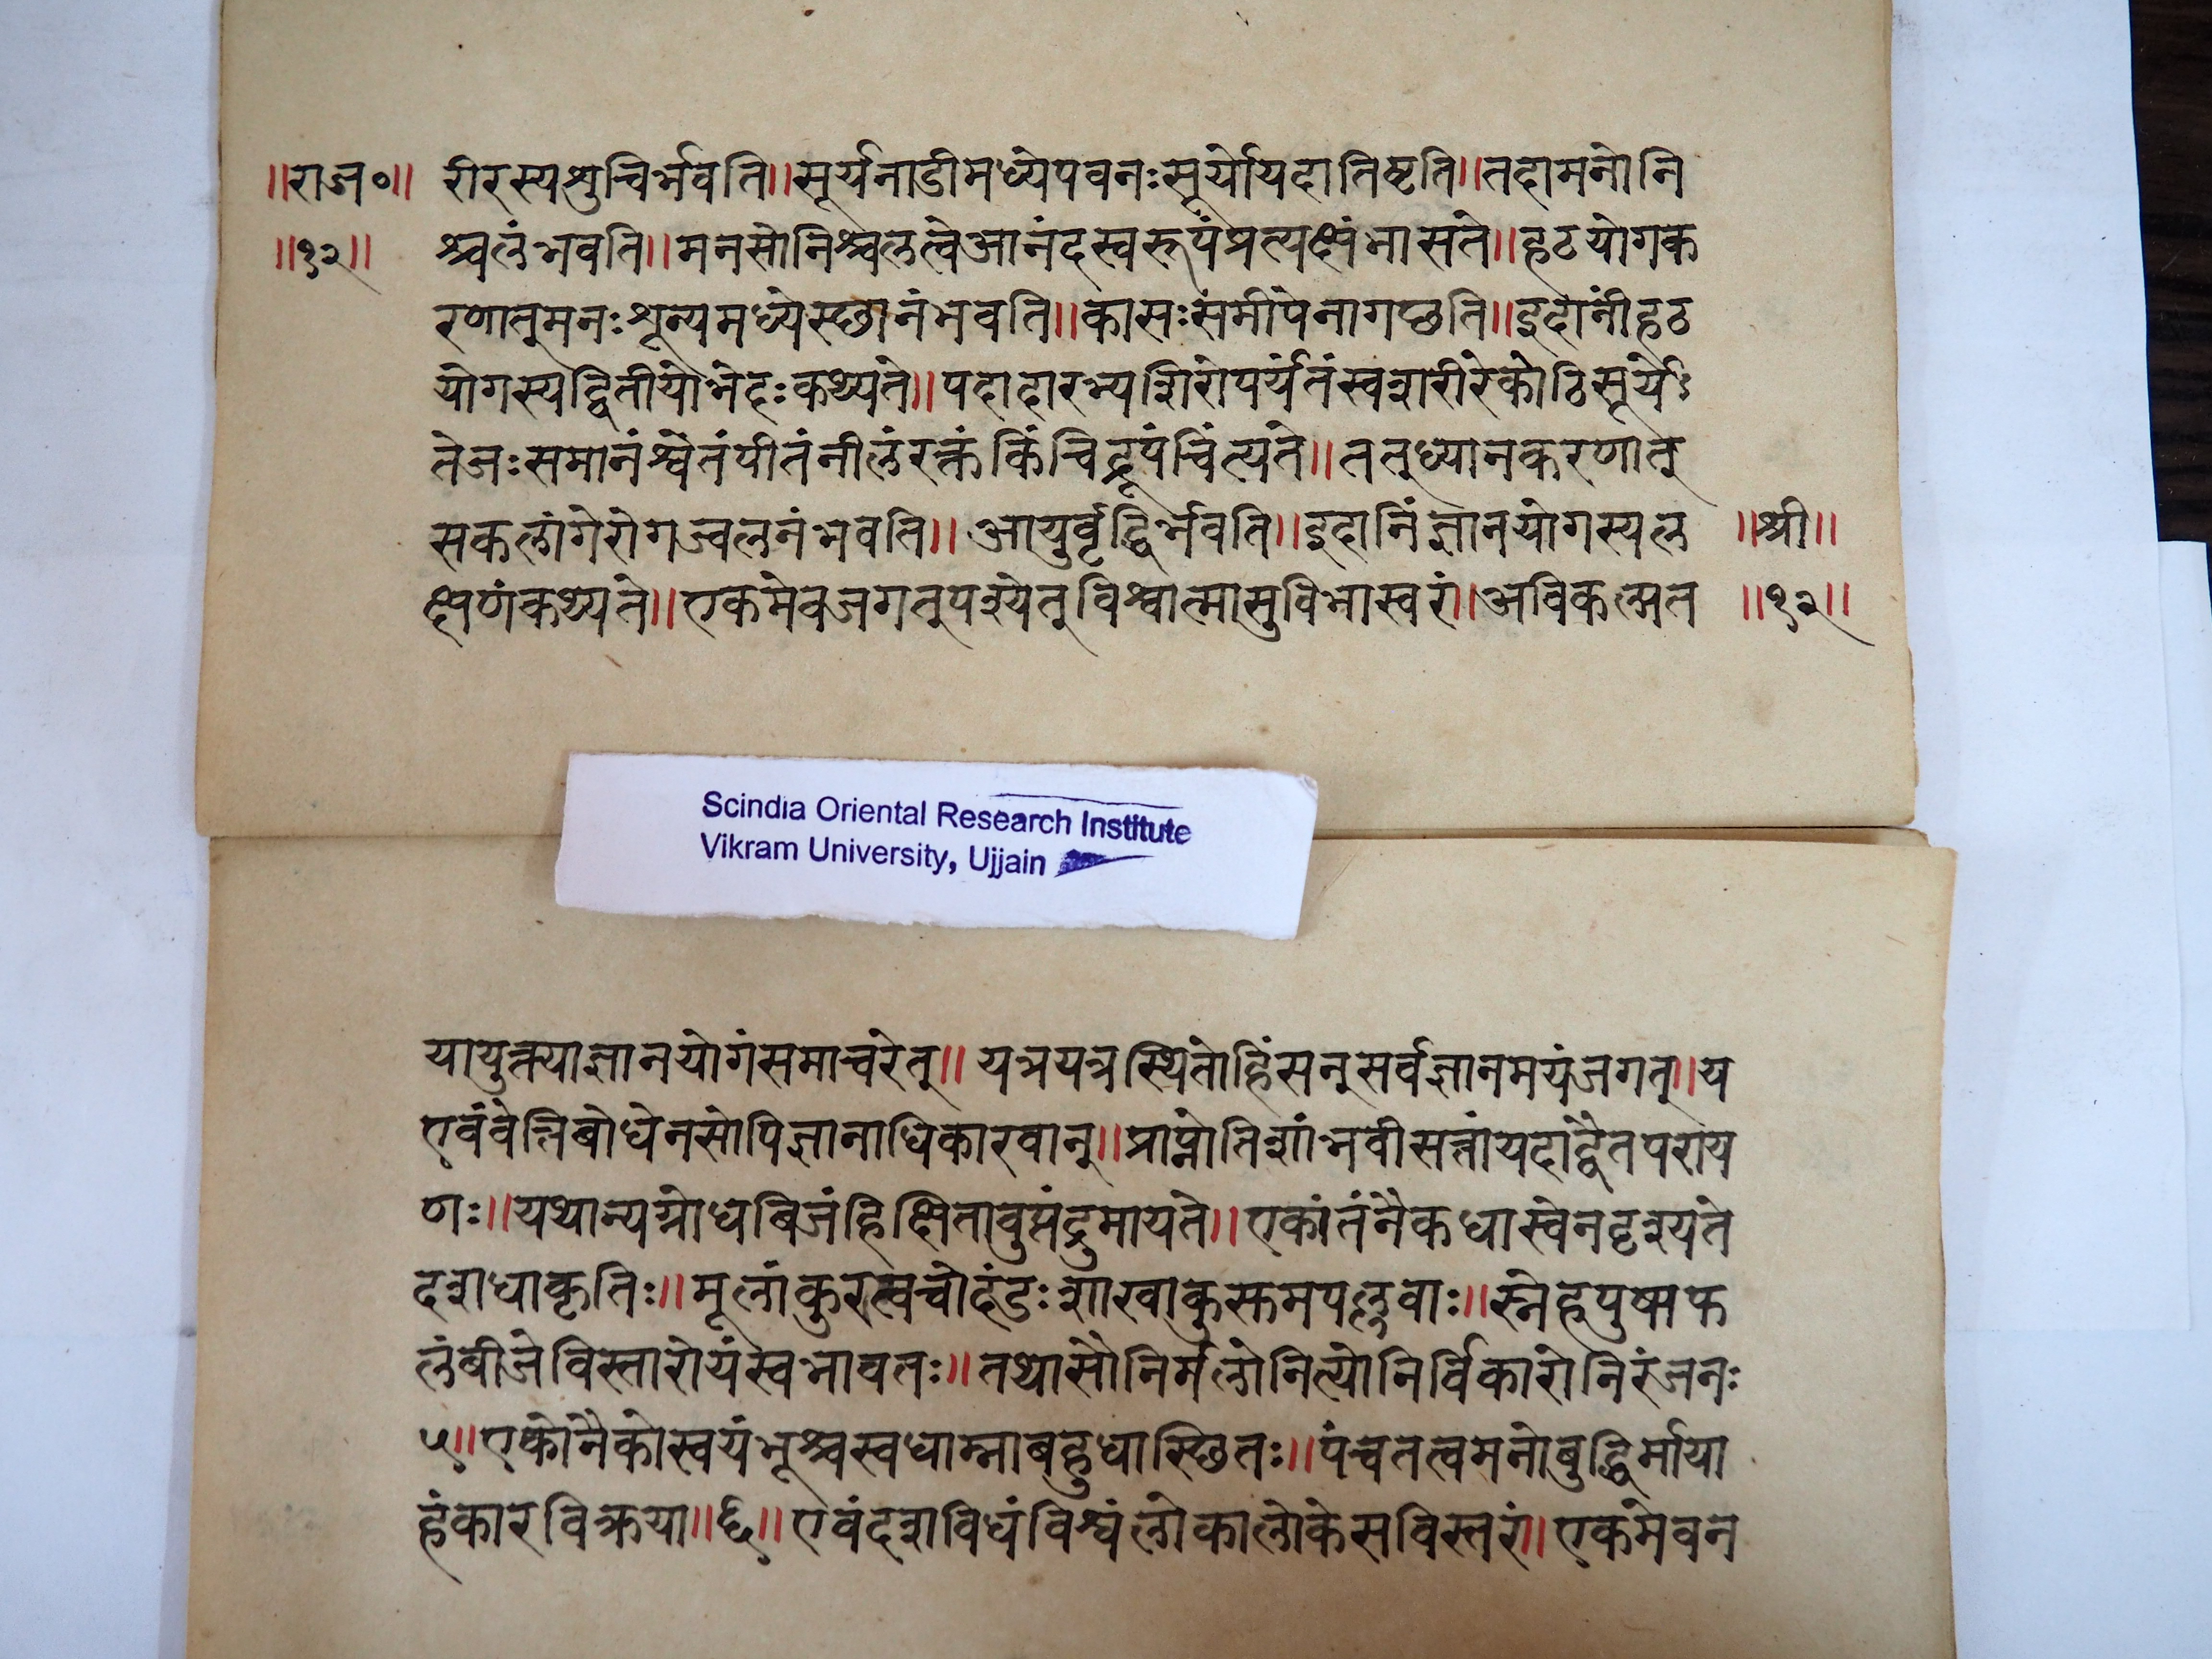 ॥राज०॥ रीरस्यशुचिर्भवति॥सूर्यनाडीमध्येपवनःसूर्योयदातिष्टति॥तदामनोनि
॥१२॥ श्चलंभवति॥मनसोनिश्चलत्वेआनंदस्वरूपंप्रत्यक्षंभासते॥हठयोगक
रणात्मनःशून्यमध्येस्छानंभवति॥कासःसमीपेनागच्छति॥इदानींहठ
योगस्यद्वितीयोभेदःकथ्यते॥पदादारभ्यशिरोपर्यंतंस्वशरीरेकोटिसूर्य
तेजःसमानंश्वेतंपीतंनीलंरक्तंकिंचिद्रूपंचिंत्यते॥तत्ध्यानकरणात्
सकलांगेरोगज्वलनंभवति॥आयुर्वृद्धिर्भवति॥इदानिंज्ञानयोगस्यल ॥श्री॥
क्षणंकथ्यते॥एकमेवजगत्पश्येत्विश्वात्मासुविभास्वरं॥अविकल्पत ॥१२॥
Scindia Oriental Research Institute
Vikram University, Ujjain
यायुक्त्याज्ञानयोगंसमाचरेत्॥यत्रयत्रस्थितोहिंसन्सर्वज्ञानमयंजगत्॥य
एवंवेत्तिबोधेनसोपिज्ञानाधिकारवान्॥प्राप्नोतिशांभवीसत्तांयदाद्वैतपराय
णः॥यथान्यग्रोधबिजंहिक्षितावुप्तंद्रुमायते॥एकांतंनैकधास्वेनदृश्यते
दशधाकृतिः॥मूलांकुरत्वचोदंडःशाखाकुस्तमपल्लवाः॥स्नेहपुष्पफ
लंबीजेविस्तारोयंस्वभावतः॥तथासौनिर्मलोनित्योनिर्विकारोनिरंजनः
५॥एकोनैकोस्वयंभूश्चस्वधाम्नाबहुधास्छितः॥पंचतत्वमनोबुद्धिर्माया
हंकारविक्रया॥६॥एवंदशविधंविश्वंलोकालोकेसविस्तरं॥एकमेवन